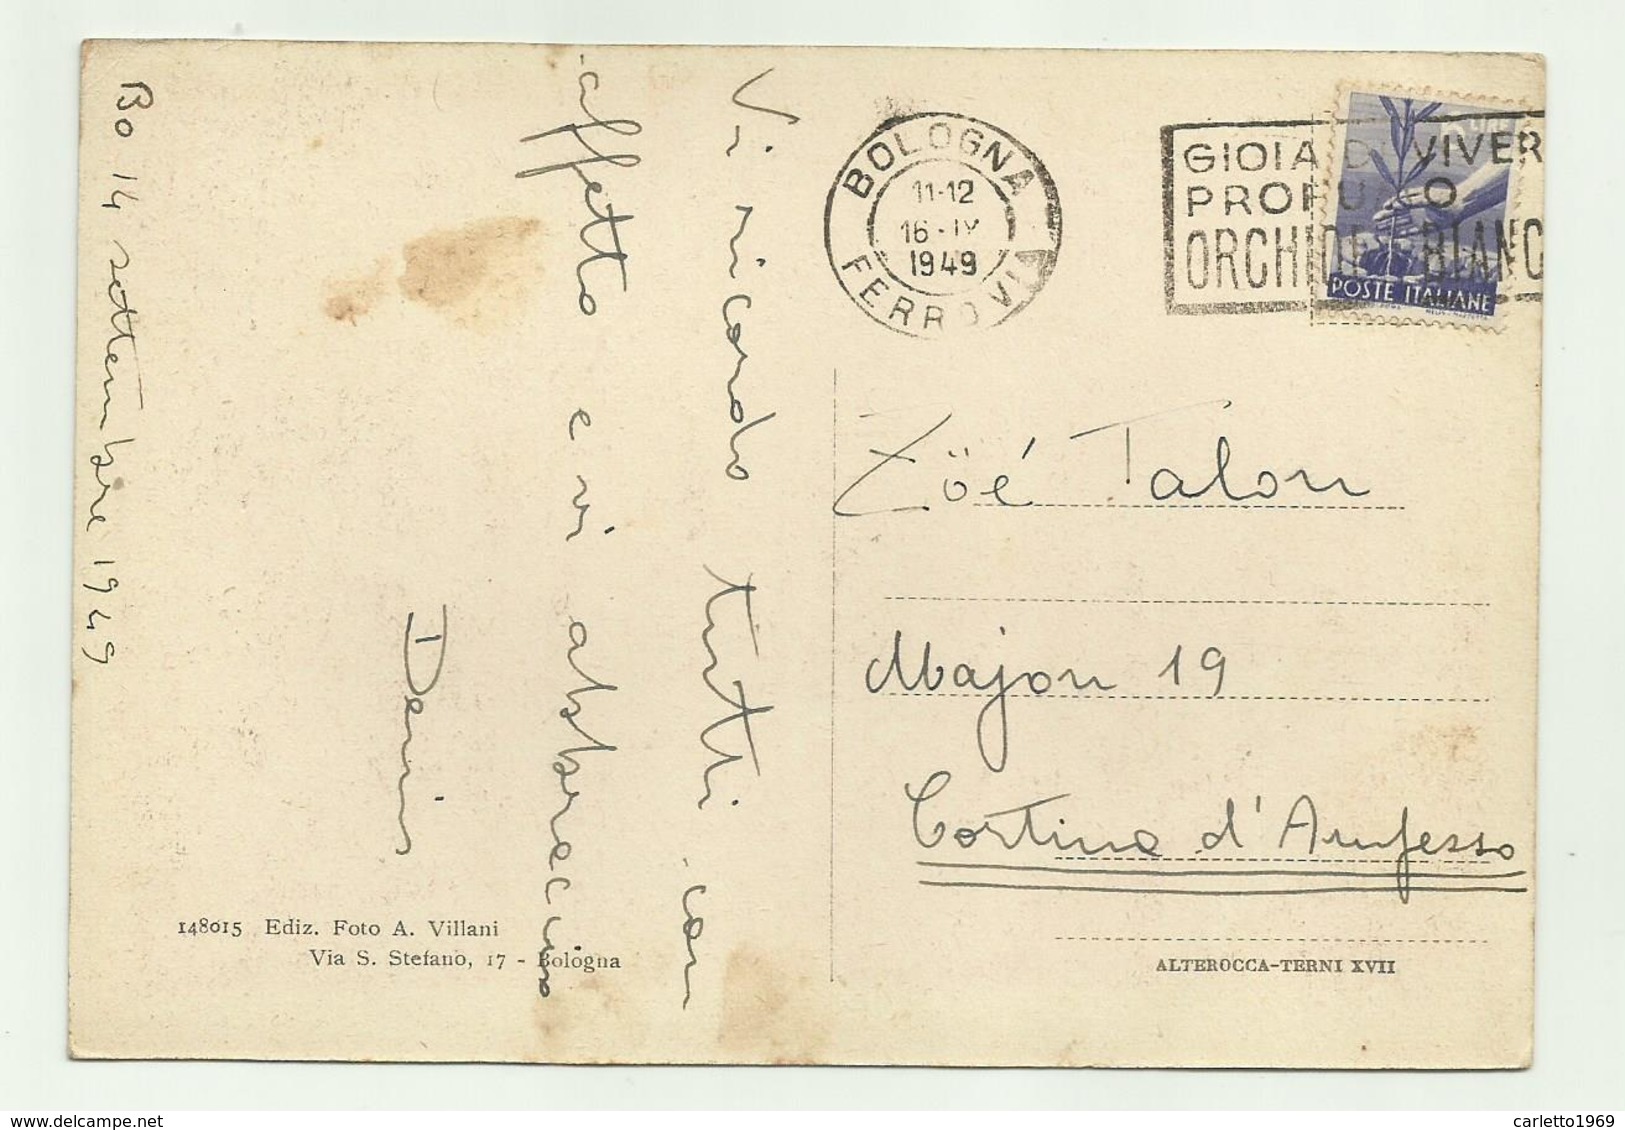 Bo 14 settembre 1949
Vi ricordo tutti con
affetto e vi abbraccio
Denis
148015 Ediz. Foto A. Villani
Via S. Stefano, 17 - Bologna
BOLOGNA
11-12
16-IX
1949
FERROVIA
GIOIA DI VIVER
PROFUMO
ORCHIDEA BIANC
POSTE ITALIANE
Zöé Talon
Majon 19
Cortina d'Ampezzo
ALTEROCCA-TERNI XVII
carletto1969